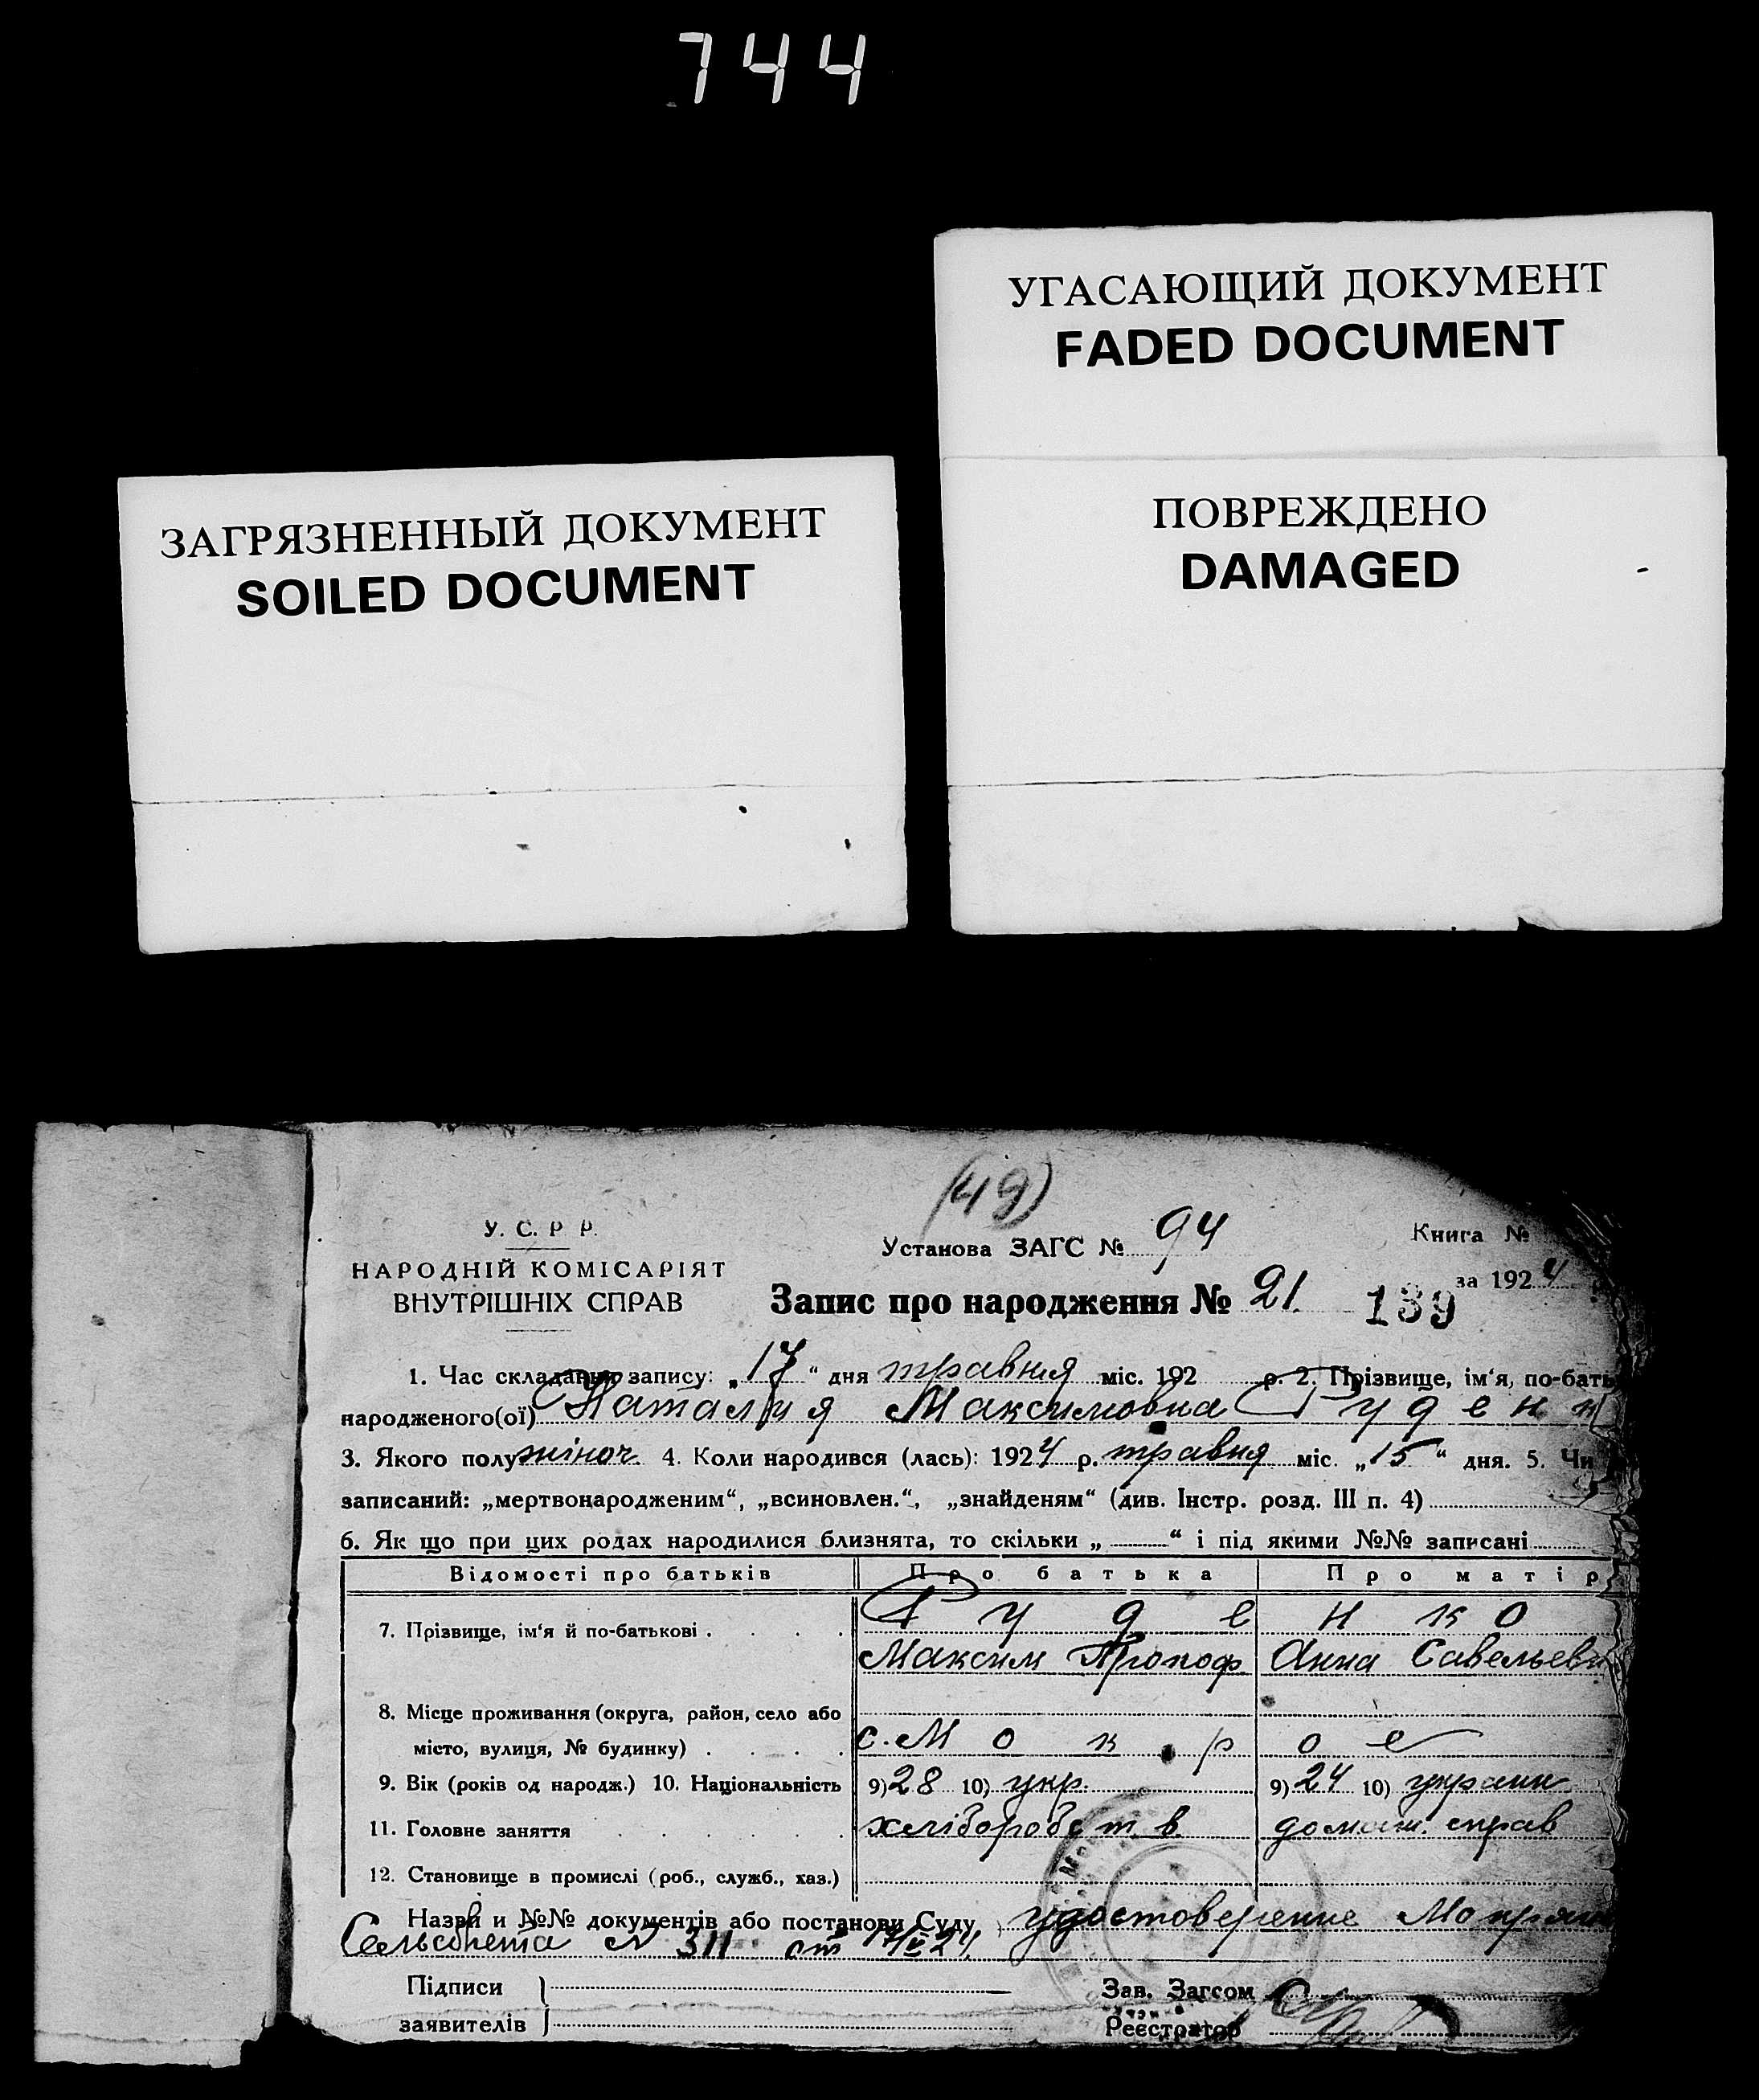 744
УГАСАЮЩИЙ ДОКУМЕНТ
FADED DOCUMENT
ЗАГРЯЗНЕННЫЙ ДОКУМЕНТ
SOILED DOCUMENT
ПОВРЕЖДЕНО
DAMAGED
(49)
У. С. Р Р.
НАРОДНІЙ КОМІСАРІЯТ
ВНУТРІШНІХ СПРАВ
Установа ЗАГС № 94
Книга №
за 1924
Запис про народження № 21. 139
1. Час складання запису: „17“ дня травня міс. 192 р. 2. Прізвище, ім‘я, по-бать
народженого(ої) Наталия Максимовна Руденк
3. Якого полу жіноч 4. Коли народився (лась): 1924 р. травня міс. „15“ дня. 5. Чи
записаний: „мертвонародженим“, „всиновлен.“, „знайденям“ (див. Інстр. розд. III п. 4)
6. Як що при цих родах народилися близнята, то скільки „ “ і під якими №№ записані
Відомості про батьків Про батька Про матір
7. Прізвище, ім‘я й по-батькові . . . . Руденко
Максим Прокоф Анна Савельевн
8. Місце проживання (округа, район, село або
місто, вулиця, № будинку) . . . . с. Мокрое
9. Вік (років од народж.) 10. Національність 9) 28 10) укр. 9) 24 10) украин
11. Головне заняття . . . . . . хліборобств. домаш. справ
12. Становище в промислі (роб., служб., хаз.)
Назви и №№ документів або постанови Суду удостоверение Мокрян
Сельсовета № 311 от 17/V 24.
Підписи
заявителів
Зав. Загсом
Реєстратор